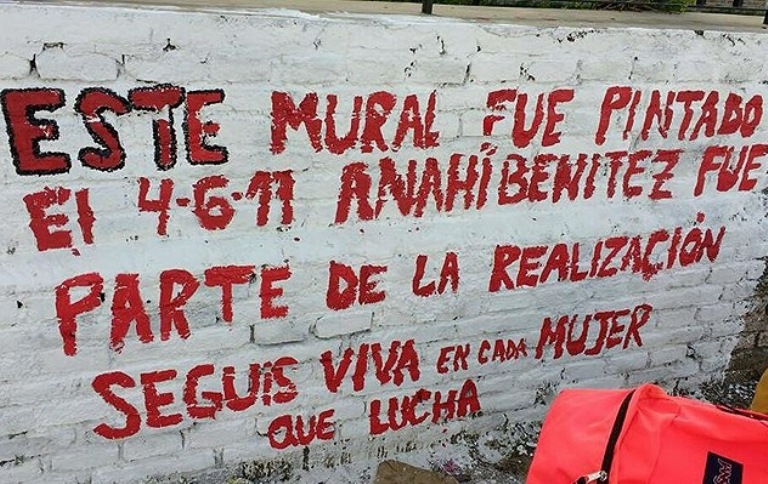 ESTE MURAL FUE PINTADO
El 4-6-11 ANAHÍ BENITEZ FUE
PARTE DE LA REALIZACIÓN
SEGUIS VIVA EN CADA MUJER
QUE LUCHA